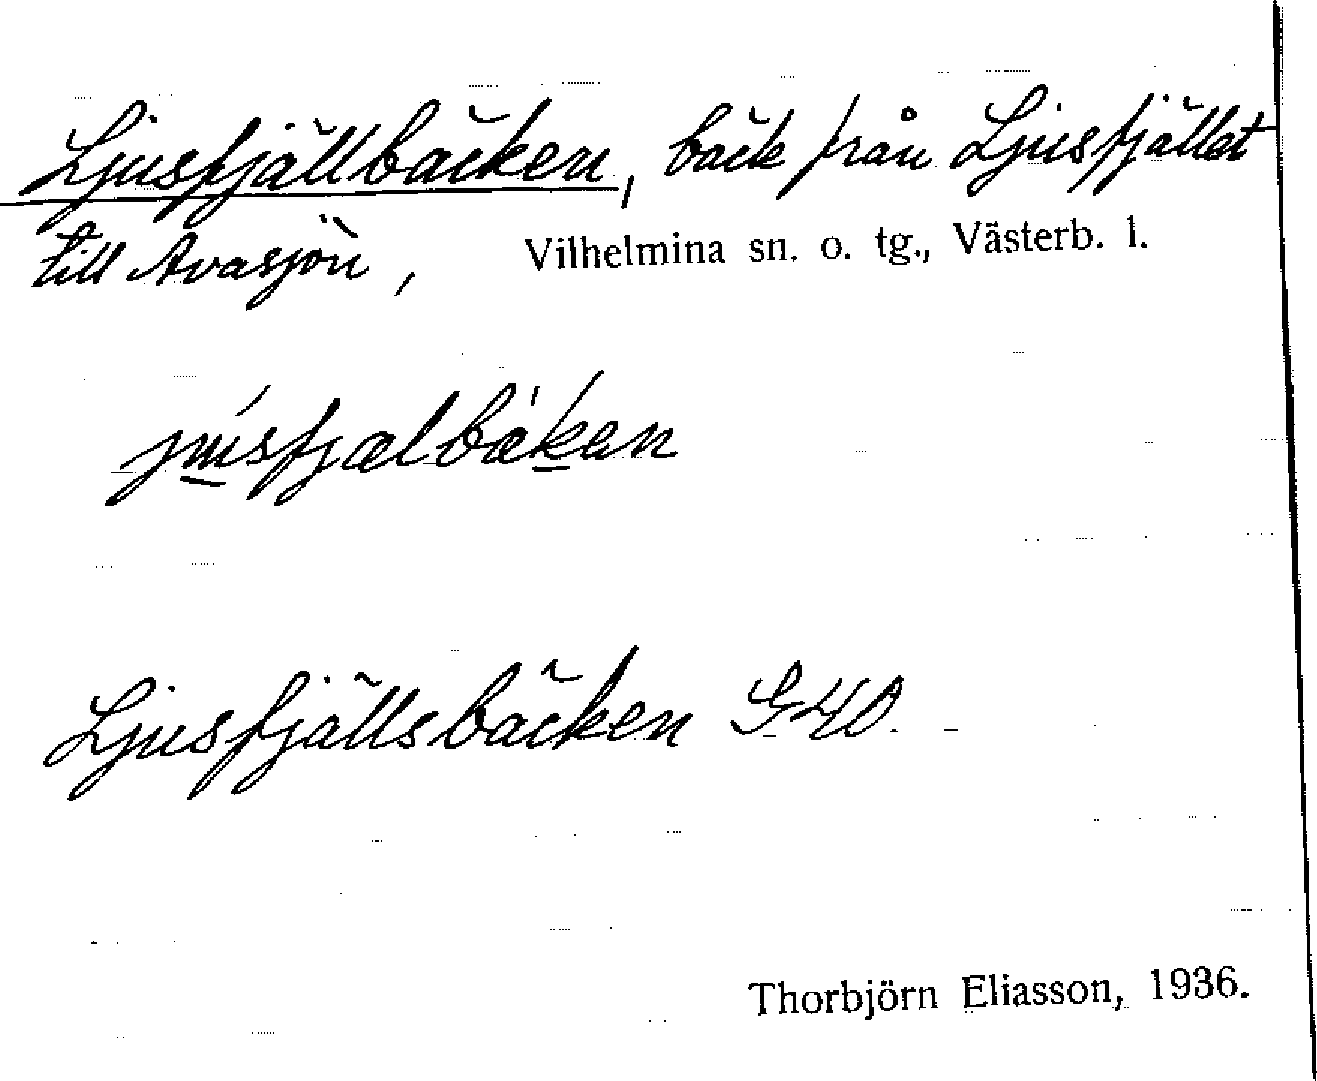 Ljusfjällbäcken, bäck från Ljusfjället
till Avasjön, Vilhelmina sn. o. tg., Västerb. l.
Ljusfjällsbäcken G40
Thorbjörn Eliasson, 1936.